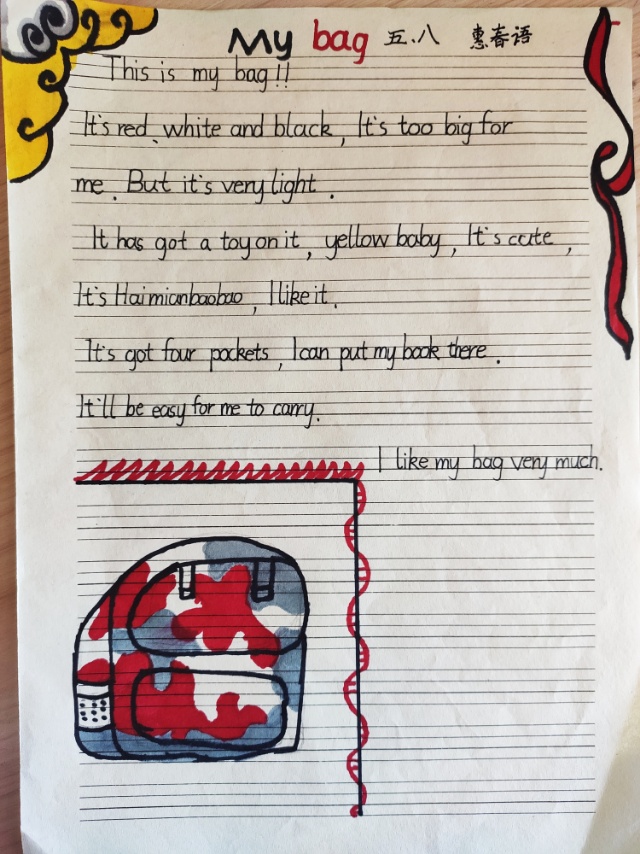 My bag 五.八 惠春语
This is my bag!!
It's red、white and black, It's too big for
me. But it's very light.
It has got a toy on it, yellow baby, It's cute,
It's Haimianbaobao, I like it.
It's got four pockets, I can put my book there.
It'll be easy for me to carry.
I like my bag very much.